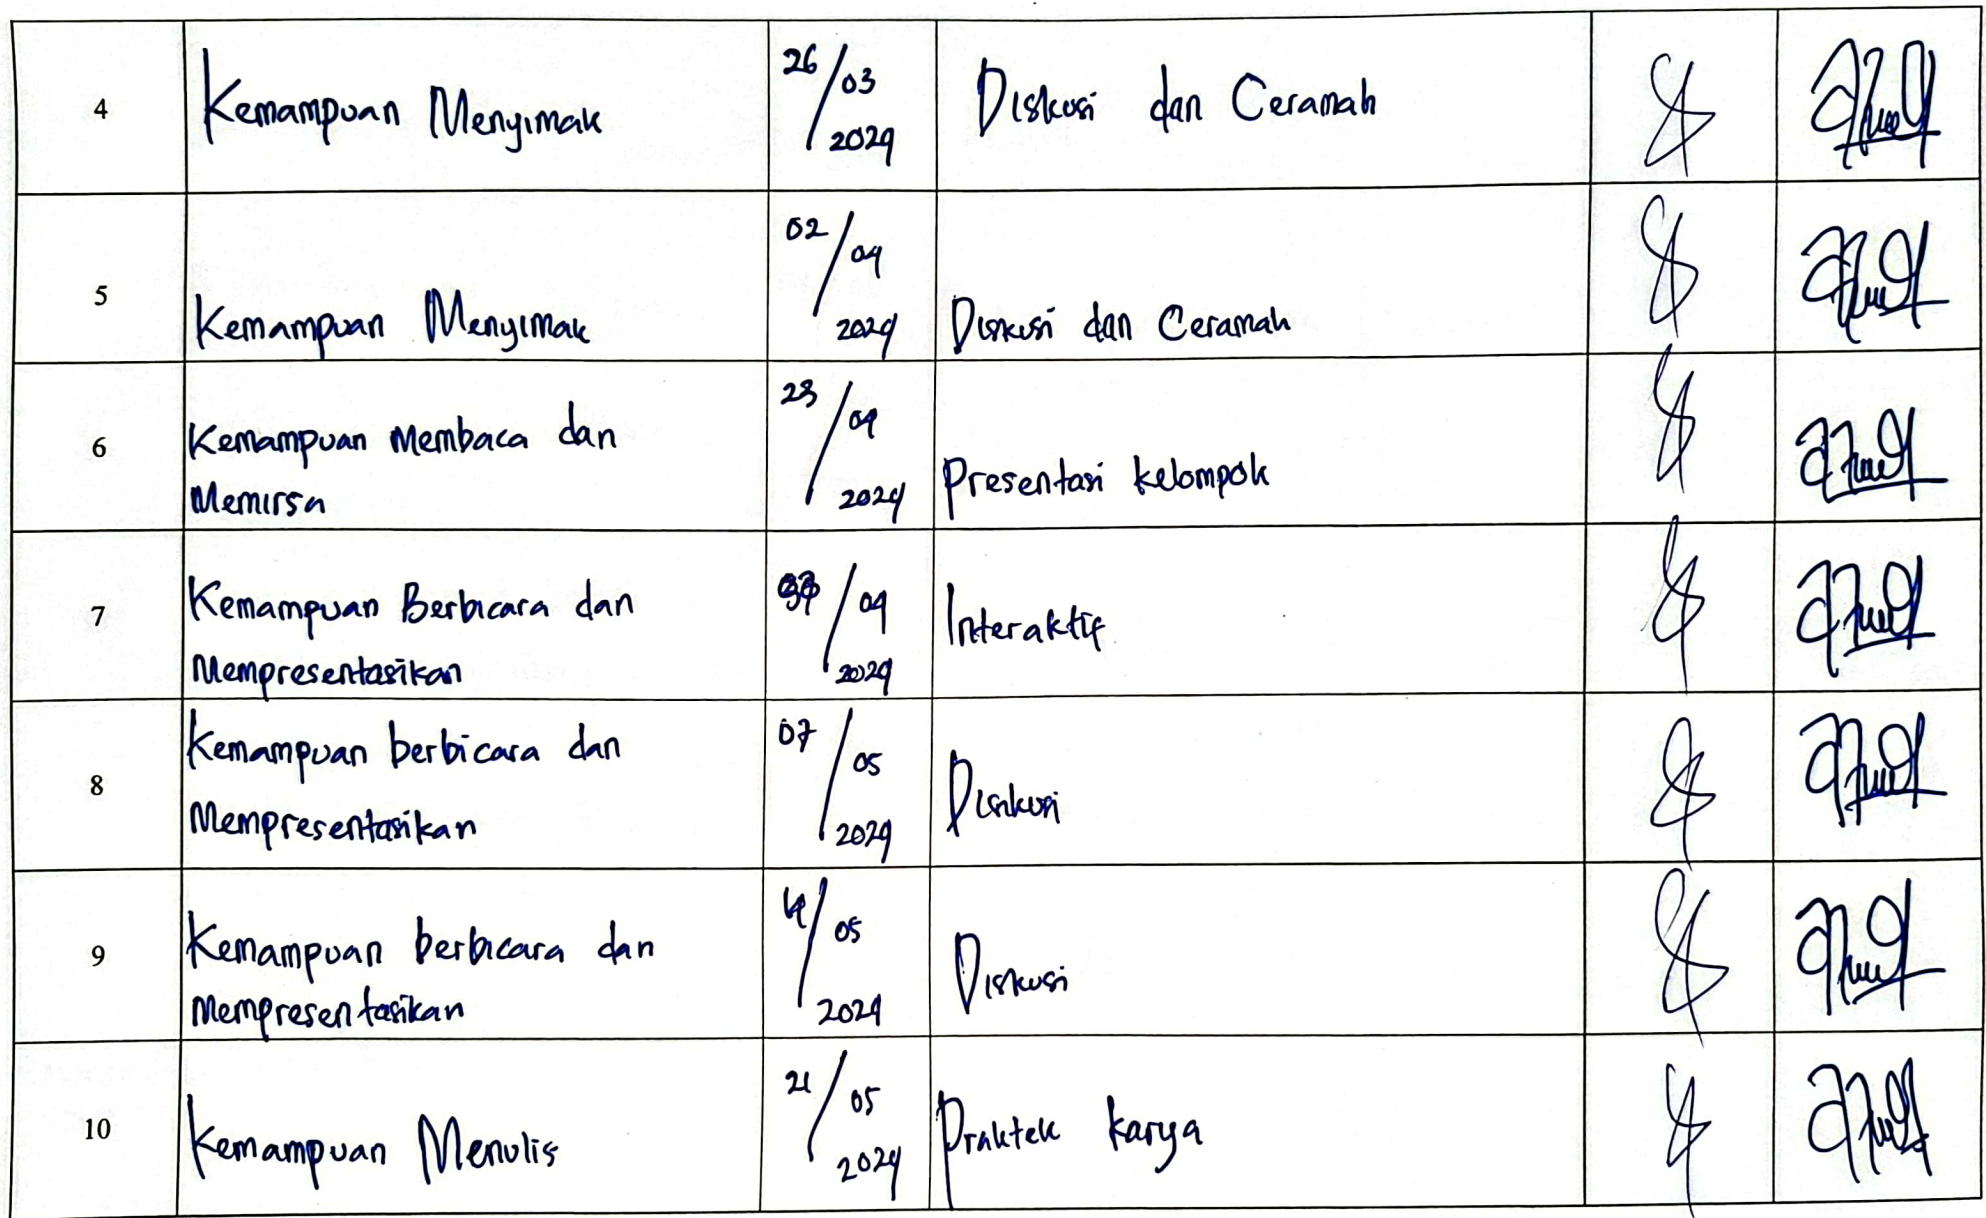 4 Kemampuan Menyimak 26/03 2024 Diskusi dan Ceramah
5 Kemampuan Menyimak 02/04 2024 Diskusi dan Ceramah
6 Kemampuan Membaca dan
Memirsa 23/04 2024 Presentasi kelompok
7 Kemampuan Berbicara dan
Mempresentasikan /04 2024 Interaktif
8 Kemampuan berbicara dan
Mempresentasikan 07/05 2024 Diskusi
9 Kemampuan berbicara dan
Mempresentasikan /05 2024 Diskusi
10 Kemampuan Menulis 21/05 2024 Praktek karya